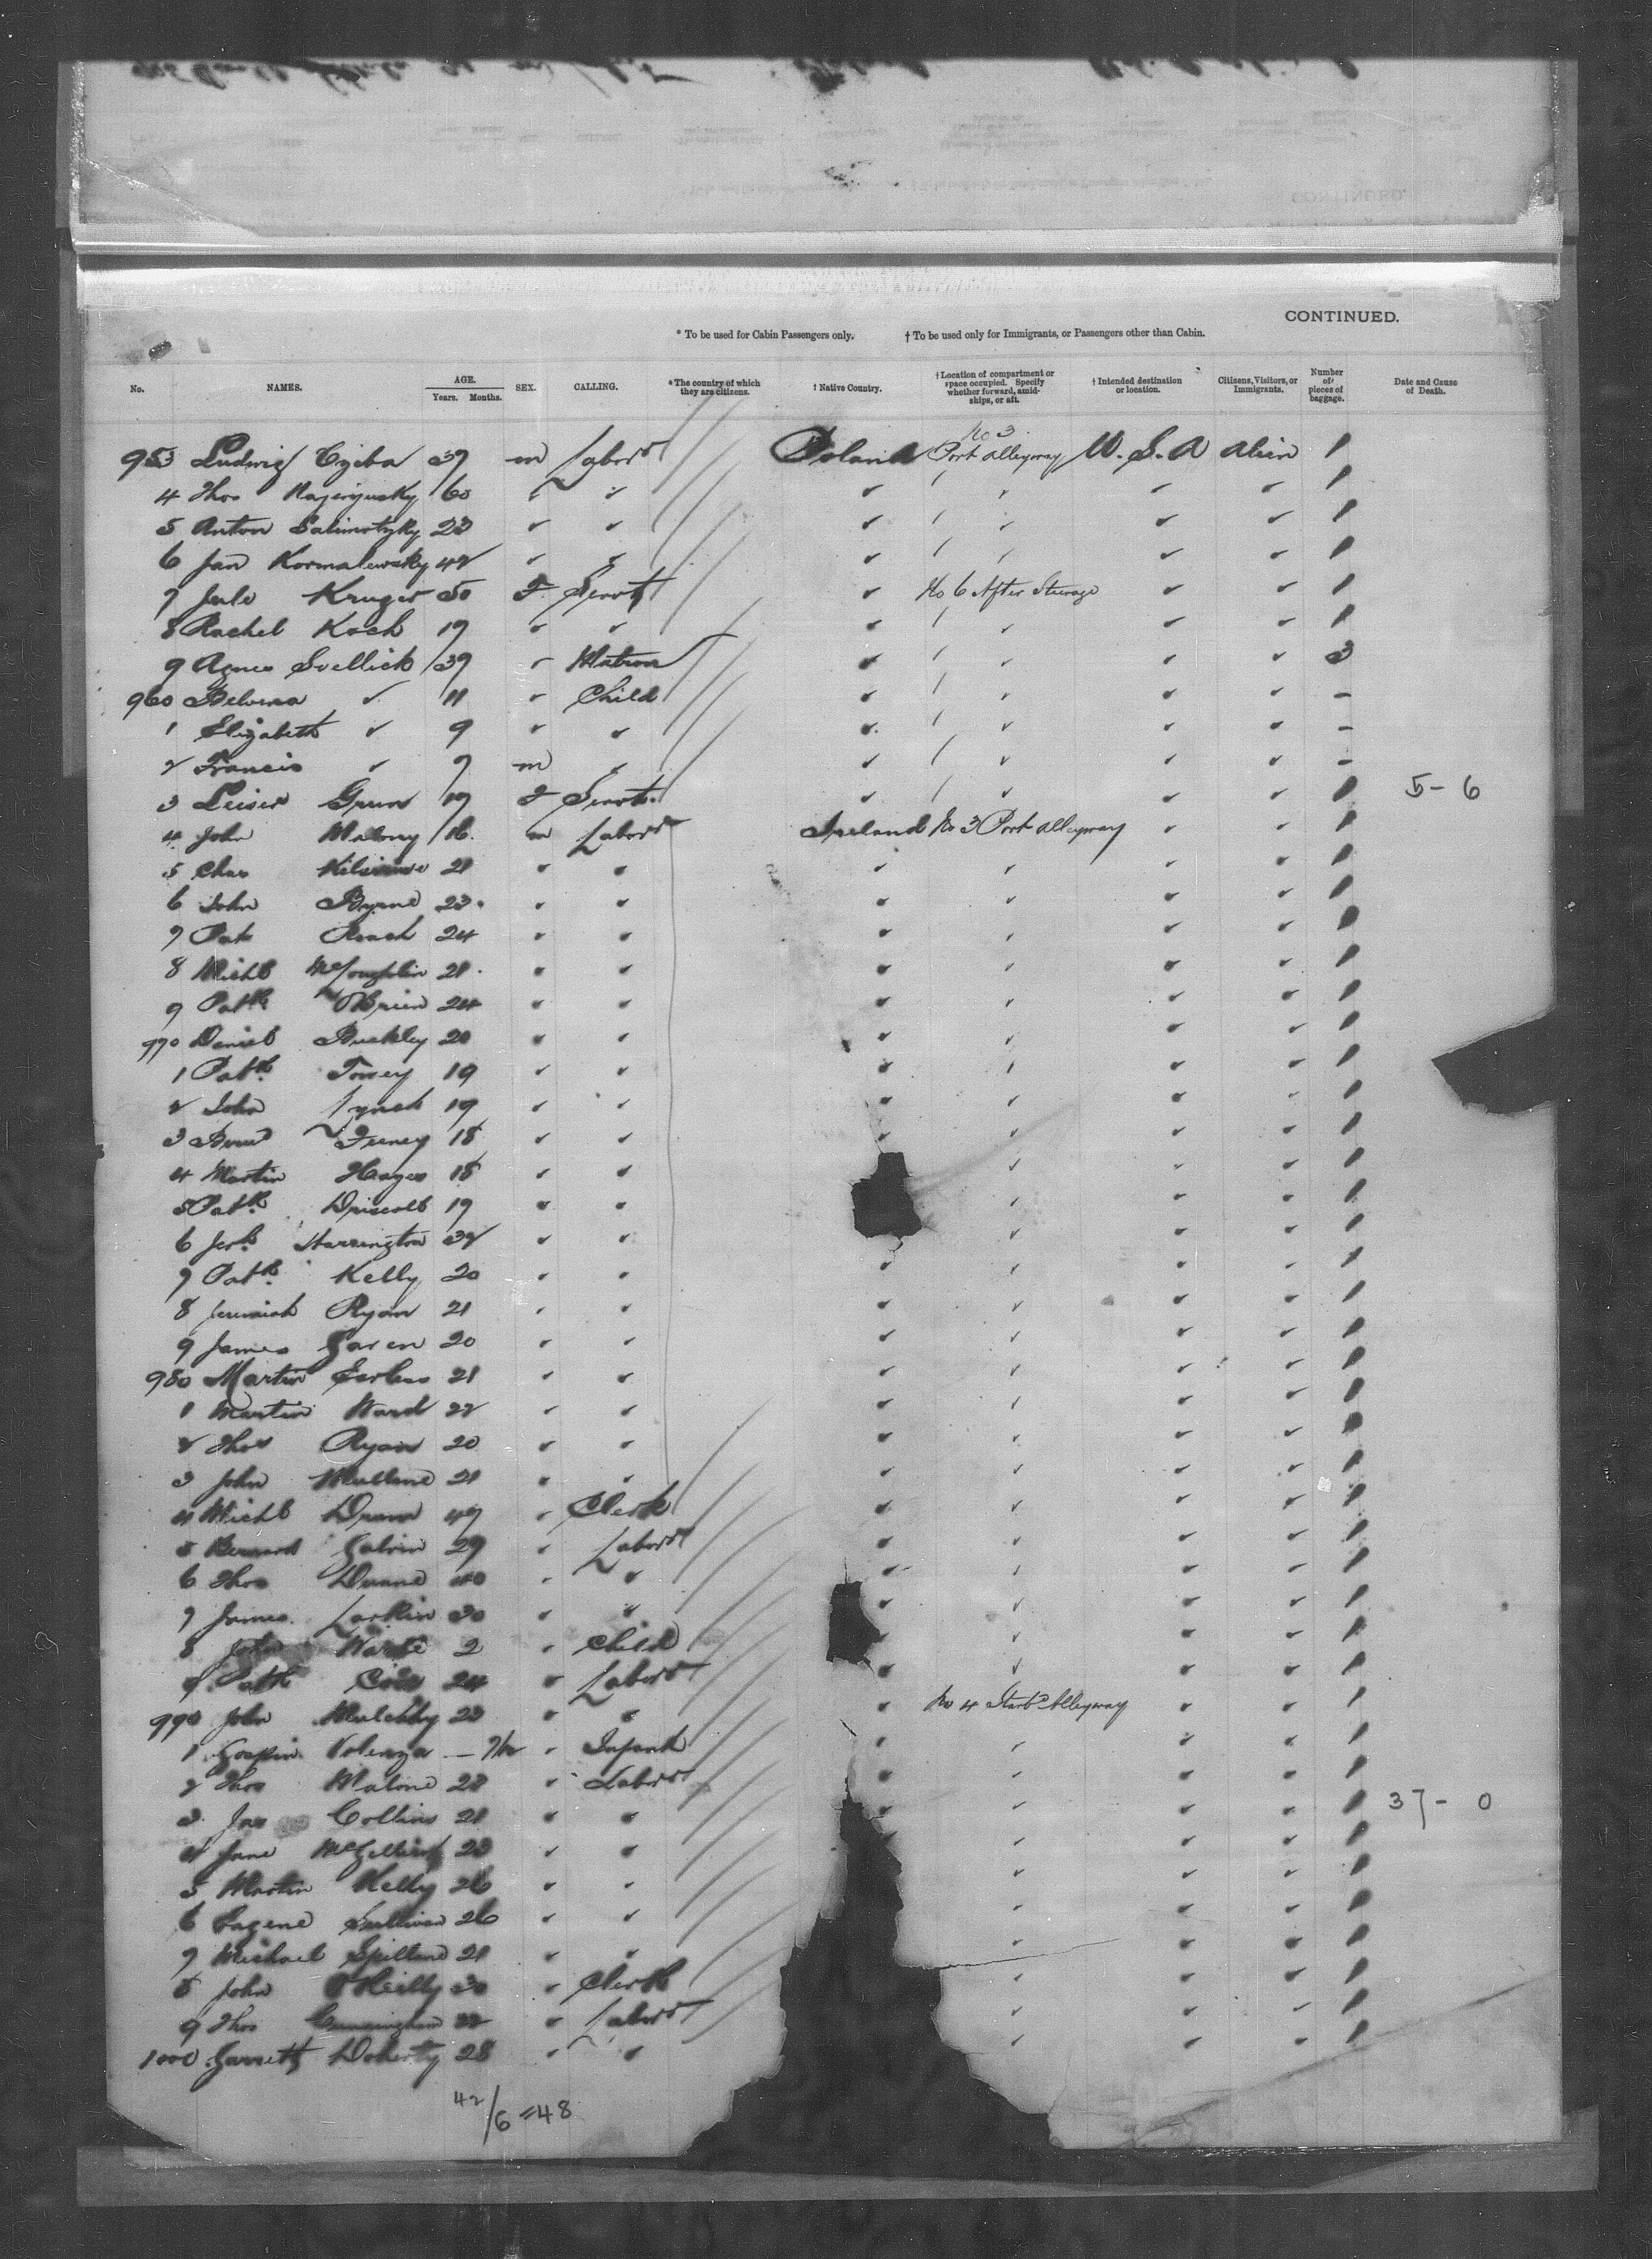 CONTINUED.
* To be used for Cabin Passengers only. † To be used only for Immigrants, or Passengers other than Cabin.
No. NAMES. AGE. Years. Months. SEX. CALLING. * The country of which they are citizens. † Native Country. † Location of compartment or space occupied. Specify whether forward, amidships, or aft. † Intended destination or location. Citizens, Visitors, or Immigrants. Number of pieces of baggage. Date and Cause of Death.
No 3
953 Ludwig 39 m Labor Poland Port Alleyway U.S.A Alien 1
4 Thos 60 1
5 Anton 23 1
6 Jan Kormalewsky 42 1
7 Kruger 50 F Servt No 6 After Steerage 1
8 Rachel Koch 19 1
9 Agnes 39 Matron 3
960 11 Child -
1 Elizabeth 9 -
2 Francis 7 m -
3 Grun 19 F Servt. 1 5-6
4 John Malony 16 m Labor Ireland No 3 Port Alleyway 1
5 Chas 21 1
6 John Byrne 23 1
7 Pat Roach 24 1
8 Michl McLoughlin 21 1
9 Patk O'Brien 24 1
970 Daniel Buckley 20 1
1 Patk 19 1
2 John Lynch 19 1
3 Feeney 18 1
4 Martin Hayes 18 1
5 Patk Driscoll 19 1
6 Harrington 32 1
7 Patk Kelly 20 1
8 Jeremiah Ryan 21 1
9 James 20 1
980 Martin 21 1
1 Martin Ward 22 1
2 Thos Ryan 20 1
3 John 21 1
4 Michl 47 Clerk 1
5 Bernard Galvin 29 Labor 1
6 Thos Duane 40 1
7 James Larkin 30 1
8 John 2 Child 1
9 Patk 24 Labor 1
990 John 23 No 4 Starb Alleyway 1
1 Infant 1
2 Thos Malone 28 Labor 1
3 Jas Collins 21 1 37-0
4 Jane 23 1
5 Martin Kelly 26 1
6 Eugene Sullivan 26 1
7 Michael Spillane 21 1
8 John O'Reilly 30 Clerk 1
9 Thos Cunningham 22 Labor 1
1000 Garrett Doherty 28 1
42/6=48